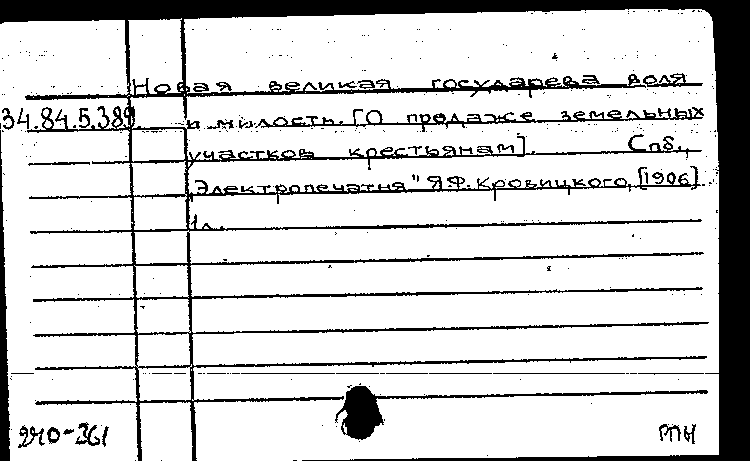 Новая великая государева воля
34.84.5.389 и милость. [О продаже земельных
участков крестьянам]. Спб.,
"Электропечатня" Я.Ф. Кровицкого, [1906]
1л.
240-361 РПН